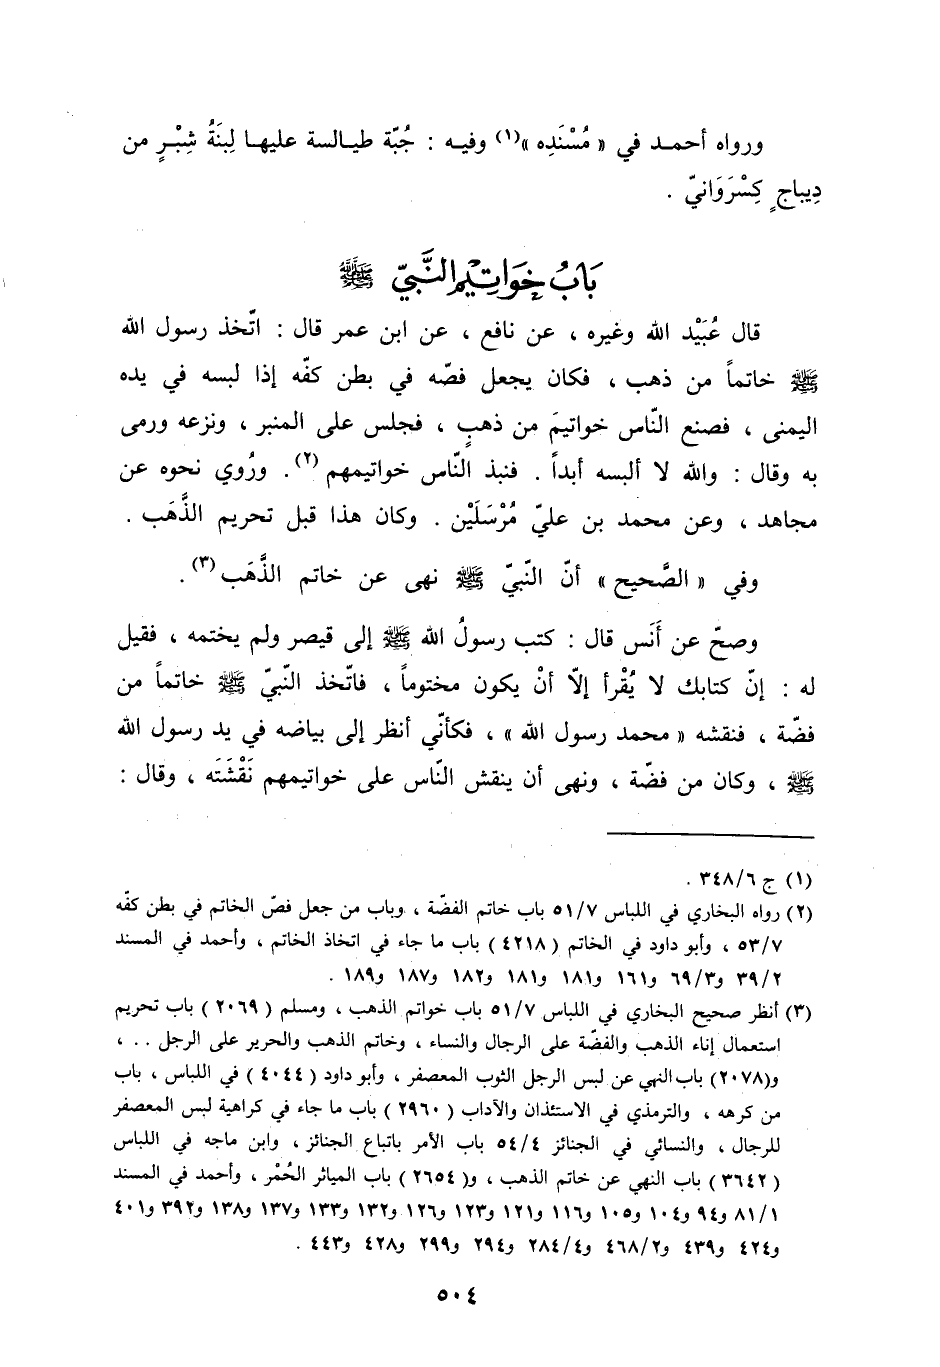 ورواه أحمد في « مُسْنَدِه »(١) وفيه : جُبّة طيالسة عليها لِبنَةُ شِبْرٍ من
دِيباجٍ كِسْرَوَانيّ .
بَابُ خَوَاتِيمِ النَّبيّ ﷺ
قال عُبَيْد الله وغيره ، عن نافع ، عن ابن عمر قال : اتّخذ رسول الله
ﷺ خاتماً من ذهب ، فكان يجعل فصّه في بطن كفّه إذا لبسه في يده
اليمنى ، فصنع النّاس خواتيمَ من ذهبٍ ، فجلس على المنبر ، ونزعه ورمى
به وقال : والله لا ألبسه أبداً . فنبذ النّاس خواتيمهم (٢) . ورُوي نحوه عن
مجاهد ، وعن محمد بن عليّ مُرْسَلَيْن . وكان هذا قبل تحريم الذَّهَب .
وفي « الصَّحيح » أنّ النّبيّ ﷺ نهى عن خاتم الذَّهَب (٣) .
وصحّ عن أَنَس قال : كتب رسولُ الله ﷺ إلى قيصر ولم يختمه ، فقيل
له : إنّ كتابك لا يُقْرأ إلاّ أنْ يكون مختوماً ، فاتّخذ النّبيّ ﷺ خاتماً من
فضّة ، فنقشه « محمد رسول الله » ، فكأنّي أنظر إلى بياضه في يد رسول الله
ﷺ ، وكان من فضّة ، ونهى أن ينقش النّاس على خواتيمهم نَقْشَتَه ، وقال :
(١) ج ٣٤٨/٦ .
(٢) رواه البخاري في اللباس ٥١/٧ باب خاتم الفضّة ، وباب من جعل فصّ الخاتم في بطن كفّه
٥٣/٧ ، وأبو داود في الخاتم ( ٤٢١٨ ) باب ما جاء في اتخاذ الخاتم ، وأحمد في المسند
٣٩/٢ و٦٩/٣ و١٦١ و١٨١ و١٨١ و١٨٢ و١٨٧ و١٨٩ .
(٣) أنظر صحيح البخاري في اللباس ٥١/٧ باب خواتم الذهب ، ومسلم ( ٢٠٦٩ ) باب تحريم
استعمال إناء الذهب والفضّة على الرجال والنساء ، وخاتم الذهب والحرير على الرجل . . ،
و(٢٠٧٨) باب النهي عن لبس الرجل الثوب المعصفر ، وأبو داود ( ٤٠٤٤ ) في اللباس ، باب
من كرهه ، والترمذي في الاستئذان والآداب ( ٢٩٦٠ ) باب ما جاء في كراهية لبس المعصفر
للرجال ، والنسائي في الجنائز ٥٤/٤ باب الأمر باتباع الجنائز ، وابن ماجه في اللباس
( ٣٦٤٢ ) باب النهي عن خاتم الذهب ، و( ٢٦٥٤ ) باب المياثر الحُمْر ، وأحمد في المسند
٨١/١ و٩٤ و١٠٤ و١٠٥ و١١٦ و١٢١ و١٢٣ و١٢٦ و١٣٢ و١٣٣ و١٣٧ و١٣٨ و٣٩٢ و٤٠١
و٤٢٤ و٤٣٩ و٤٦٨/٢ و٢٨٤/٤ و٢٩٤ و٢٩٩ و٤٢٨ و٤٤٣ .
٥٠٤